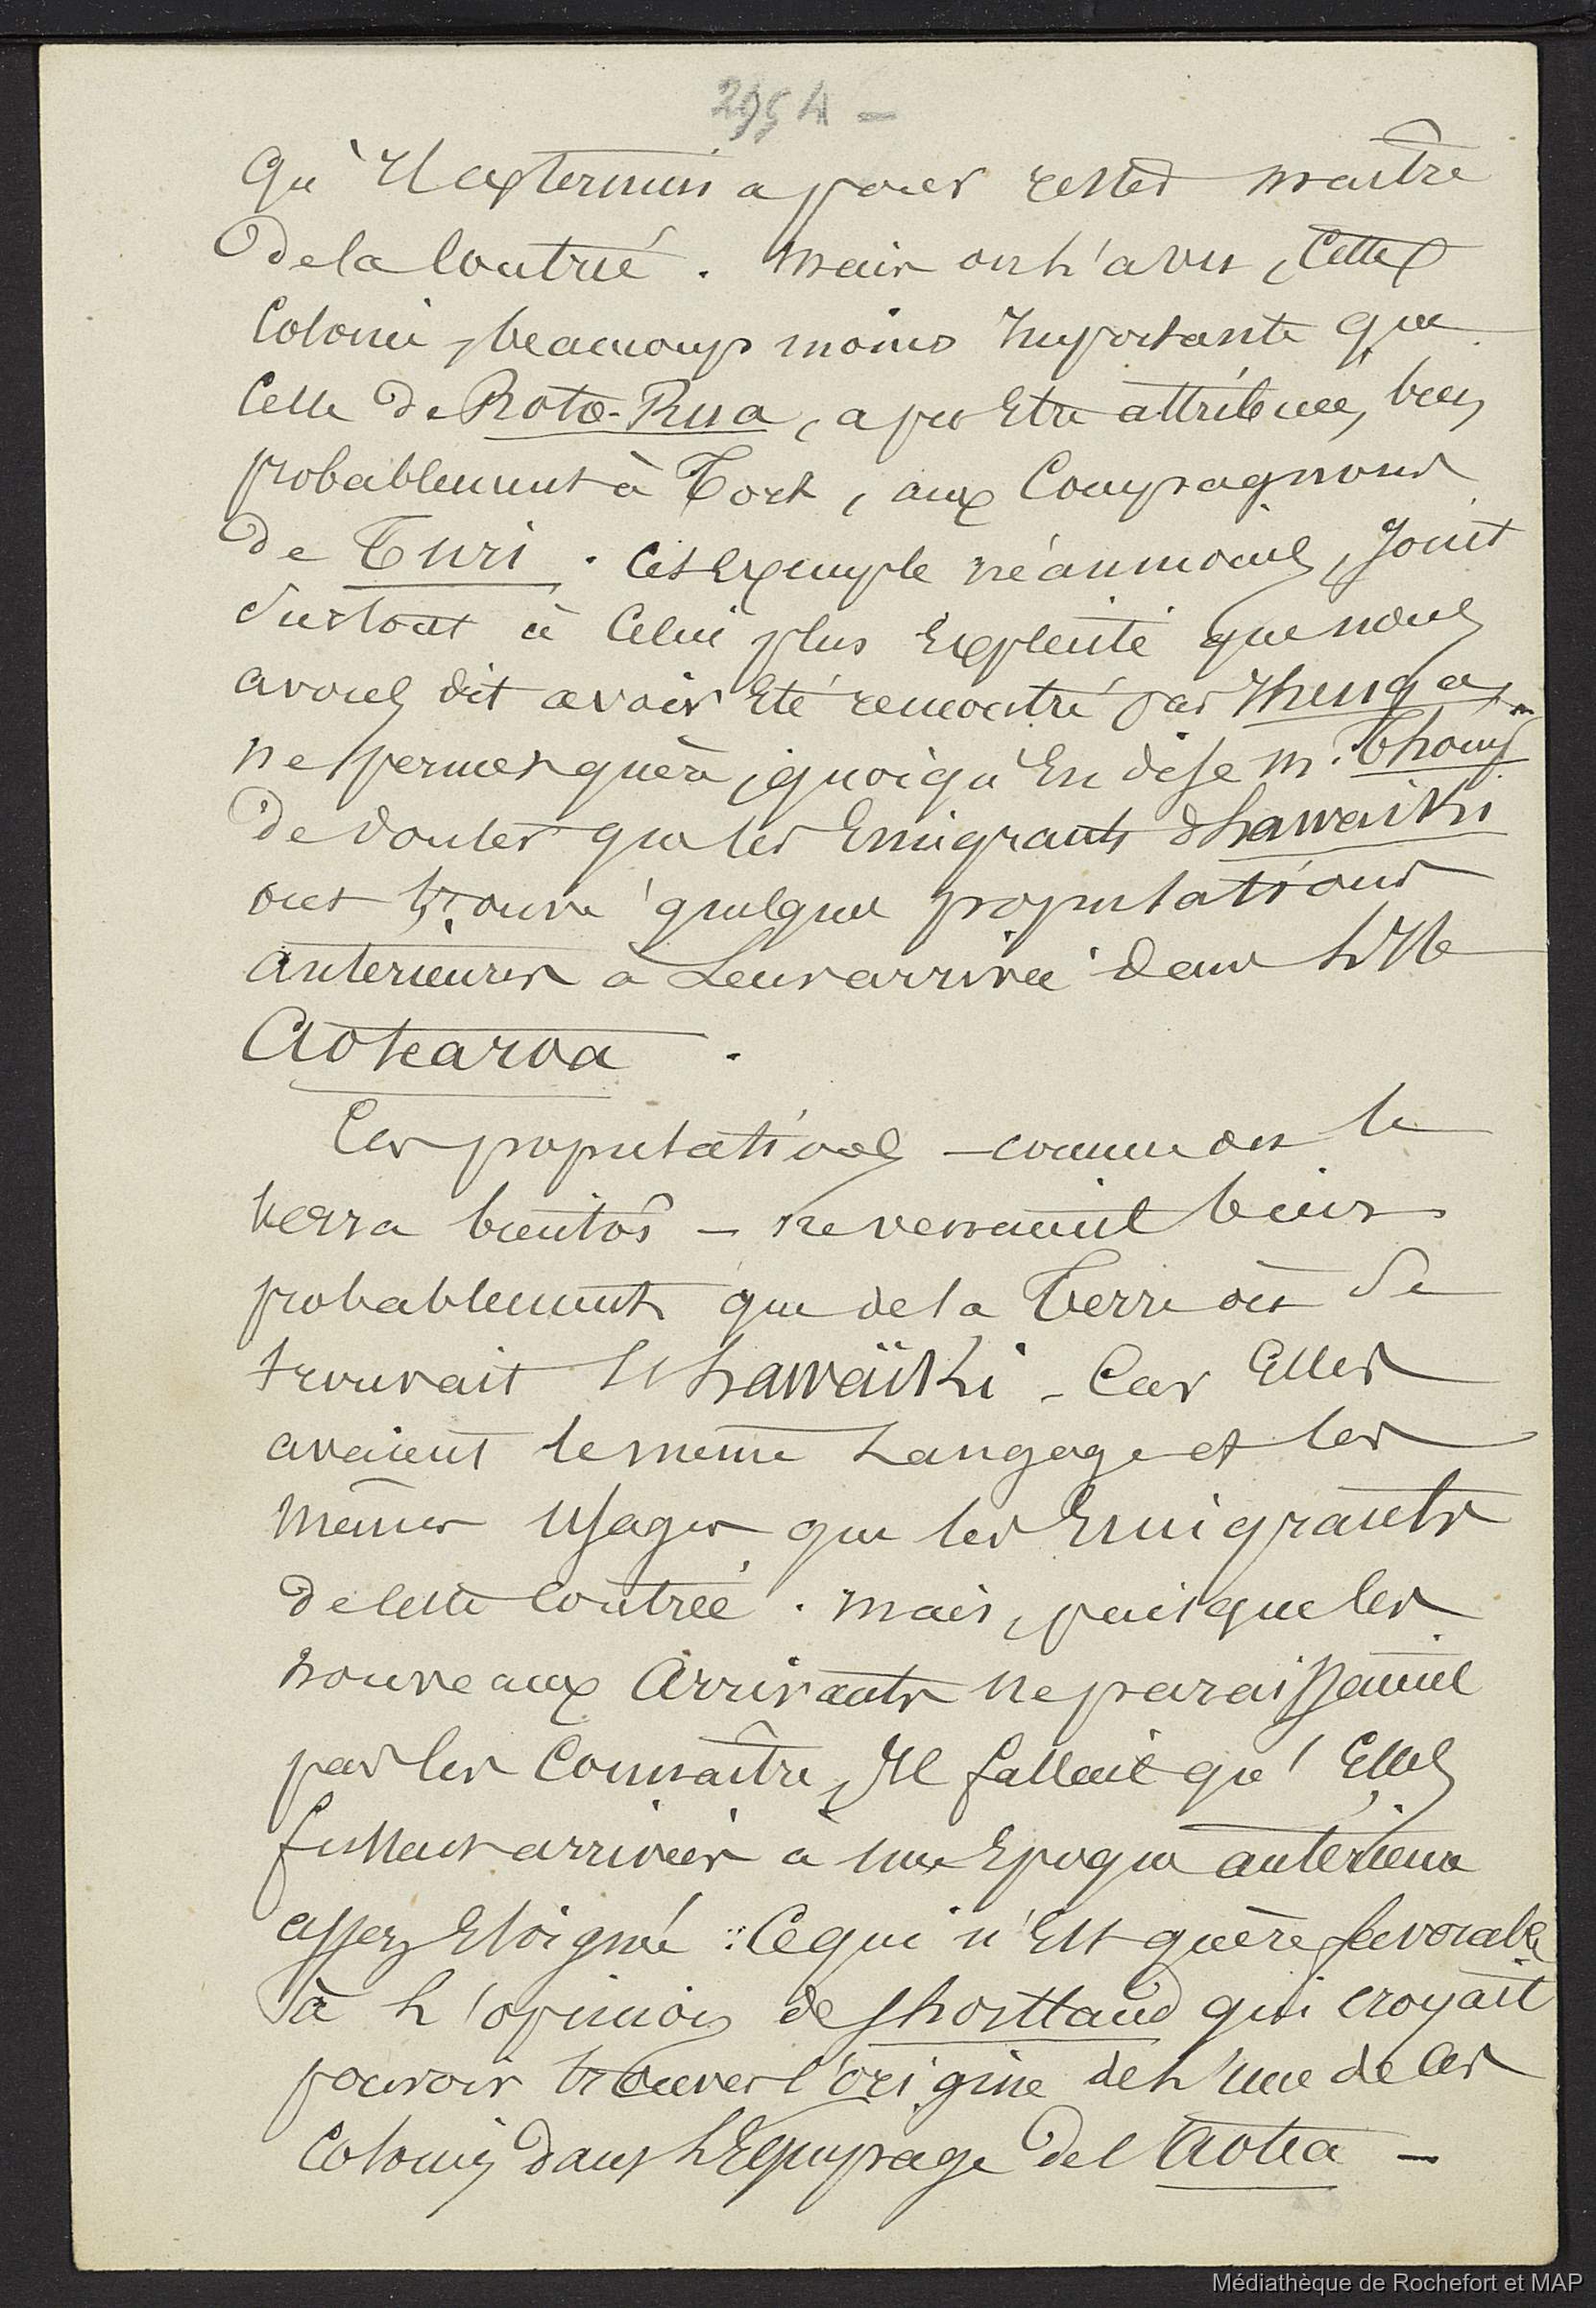 295 A —
qu'il extermina pour rester maître
de la Contrée. Mais on l'a vu, cette
Colonie, beaucoup moins Importante que
Celle de Roto-Rua, a pu être attribuée, bien
probablement à Tort, aux Compagnons
de Turi. Cet Exemple néanmoins, Joint
surtout à Celui plus Explicite que nous
avons dit avoir Eté rencontré par
ne permet guère, quoiqu'en dise M. Thoms
de douter que les Emigrants d'hawaiki
ont trouvé quelques populations
antérieures à Leur arrivée dans l'Ile
Aotearoa.
Ces populations – comme on le
verra bientôt – ne venaient bien
probablement que de la Terre où se
trouvait l'hawaïki – Car Elles
avaient le même Langage et les
mêmes usages que les Emigrants
de cette Contrée. Mais, puisque les
nouveaux Arrivants ne paraissaient
pas les Connaître, Il fallait qu'Elles
fussent arrivées à une Epoque antérieure
assez Eloignée : Ce qui n'Est guère favorable
à l'opinion de Shortland qui croyait
pouvoir trouver l'origine de l'une de ces
Colonies dans l'Equipage de l'Aotea –
Médiathèque de Rochefort et MAP